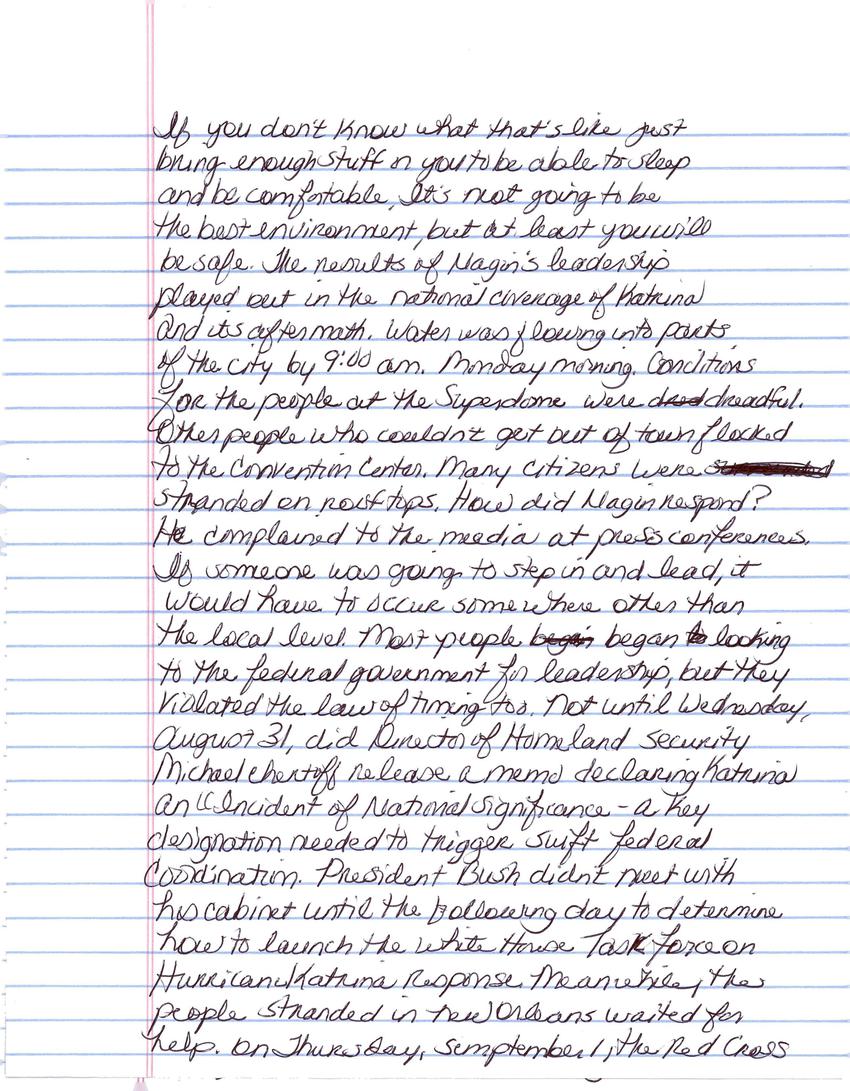 If you don't know what that's like just
bring enough stuff n you to be able to sleep
and be comfortable. It's not going to be
the best environment, but at least you will
be safe. The results of Nagin's leadership
played out in the national coverage of Katrina
and its aftermath. Water was flowing into parts
of the city by 9:00 am. Monday morning. Conditions
for the people at the Superdome were dread dreadful.
Other people who couldn't get out of town flocked
to the Convention Center. Many citizens were
stranded on rooftops. How did Nagin respond?
He complained to the media at press conferences.
If someone was going to step in and lead, it
would have to occur somewhere other than
the local level. Most people begin began to looking
to the federal government for leadership, but they
violated the law of timing too. Not until Wednesday,
August 31, did Director of Homeland Security
Michael Chertoff release a memo declaring Katrina
an "Incident of National Significance - a key
designation needed to trigger swift federal
coordination. President Bush didn't meet with
his cabinet until the following day to determine
how to launch the White House Task Force on
Hurricane Katrina Response. Meanwhile, the
people stranded in New Orleans waited for
help. On Thursday, Semptember 1, the Red Cross